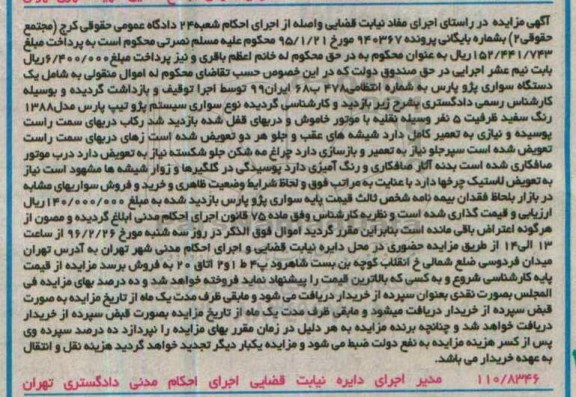 آگهی مزایده در راستای اجرای مفاد نیابت قضایی واصله از اجرای احکام شعبه ۲۴ دادگاه عمومی حقوقی کرج (مجتمع
حقوقی ۲) بشماره بایگانی پرونده ۹۴۰۳۶۷ مورخ ۹۵/۱/۲۱ محکوم علیه مسلم نصرتی محکوم است به پرداخت مبلغ
۱۵۲/۴۴۱/۷۴۳ ریال به عنوان محکوم به در حق محکوم له خانم اعظم باقری و نیز پرداخت مبلغ ۶/۴۰۰/۰۰۰ ریال
بابت نیم عشر اجرایی در حق صندوق دولت که در این خصوص حسب تقاضای محکوم له اموال منقولی به شامل یک
دستگاه سواری پژو پارس به شماره انتظامی ۴۷۸ ب ۶۸ ایران ۹۹ توسط اجرا توقیف و بازداشت گردیده و بوسیله
کارشناس رسمی دادگستری بشرح زیر بازدید و کارشناسی گردیده نوع سواری سیستم پژو تیپ پارس مدل ۱۳۸۸
رنگ سفید ظرفیت ۵ نفر وسیله نقلیه با موتور خاموش و دربهای قفل شده بازدید شد رکاب دربهای سمت راست
پوسیده و نیازی به تعمیر کامل دارد شیشه های عقب و جلو هر دو تعویض شده است زهای دربهای سمت راست
تعویض شده است سپرجلو نیاز به تعمیر و بازسازی دارد چراغ مه شکن جلو شکسته نیاز به تعویض دارد درب موتور
صافکاری شده است بدنه آثار صافکاری و رنگ آمیزی دارد پوسیدگی در گلگیرها و زوار شیشه ها مشهود است نیاز
به تعویض لاستیک چرخها دارد با عنایت به مراتب فوق و لحاظ شرایط وضعیت ظاهری و خرید و فروش سواریهای مشابه
در بازار بلحاظ فقدان بیمه نامه شخص ثالث قیمت پایه سواری پژو پارس بازدید شده به مبلغ ۱۴۰/۰۰۰/۰۰۰ ریال
ارزیابی و قیمت گذاری شده است و نظریه کارشناس وفق ماده ۷۵ قانون اجرای احکام مدنی ابلاغ گردیده و مصون از
هرگونه اعتراض باقی مانده است بنابراین مقرر گردید اموال فوق الذکر در روز سه شنبه مورخ ۹۶/۲/۲۶ از ساعت
۱۳ الی ۱۴ از طریق مزایده حضوری در محل دایره نیابت قضایی و اجرای احکام مدنی شهر تهران به آدرس تهران
میدان فردوسی ضلع شمالی خ انقلاب کوچه بن بست شاهرود پ ۴ ط ۱ و ۲ اتاق ۲۰ به فروش برسد مزایده از قیمت
پایه کارشناسی شروع و به کسی که بالاترین قیمت را پیشنهاد نماید فروخته خواهد شد و ده درصد بهای مزایده فی
المجلس بصورت نقدی بعنوان سپرده از خریدار دریافت می شود و مابقی ظرف مدت یک ماه از تاریخ مزایده به صورت
قبض سپرده از خریدار دریافت میشود و مابقی ظرف مدت یک ماه از تاریخ مزایده بصورت قبض سپرده از خریدار
دریافت خواهد شد و چنانچه برنده مزایده به هر دلیل در زمان مقرر بهای مزایده را نپردازد ده درصد سپرده وی
پس از کسر هزینه مزایده به نفع دولت ضبط می شود و مزایده یکبار دیگر تجدید خواهد گردید هزینه نقل و انتقال
به عهده خریدار می باشد.
۱۱۰/۸۳۴۶ مدیر اجرای دایره نیابت قضایی اجرای احکام مدنی دادگستری تهران